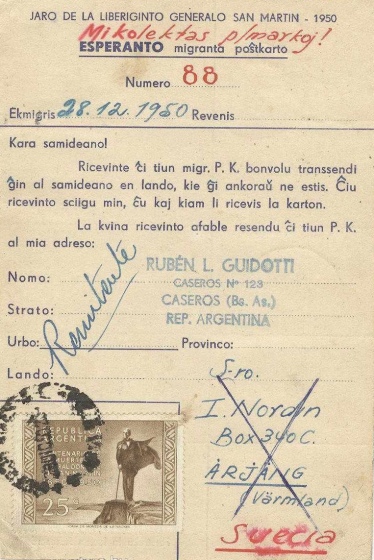 JARO DE LA LIBERIGINTO GENERALO SAN MARTIN - 1950
Mi kolektas p/markoj!
ESPERANTO migranta postkarto
Numero 88
Ekmigris 28.12.1950 Revenis
Kara samideano!
Ricevinte ĉi tiun migr. P. K. bonvolu transsendi
ĝin al samideano en lando, kie ĝi ankoraŭ ne estis. Ĉiu
ricevinto sciigu min, ĉu kaj kiam li ricevis la karton.
La kvina ricevinto afable resendu ĉi tiun P. K.
al mia adreso:
Nomo:
RUBÉN L. GUIDOTTI
CASEROS Nº 123
Strato:
CASEROS (Bs. As.)
REP. ARGENTINA
Remitente
Urbo:
Provinco:
Lando:
S-ro.
I. Nordin
Box 340 C.
ÅRJÄNG
(Värmland)
Suecia
REPUBLICA
ARGENTINA
25